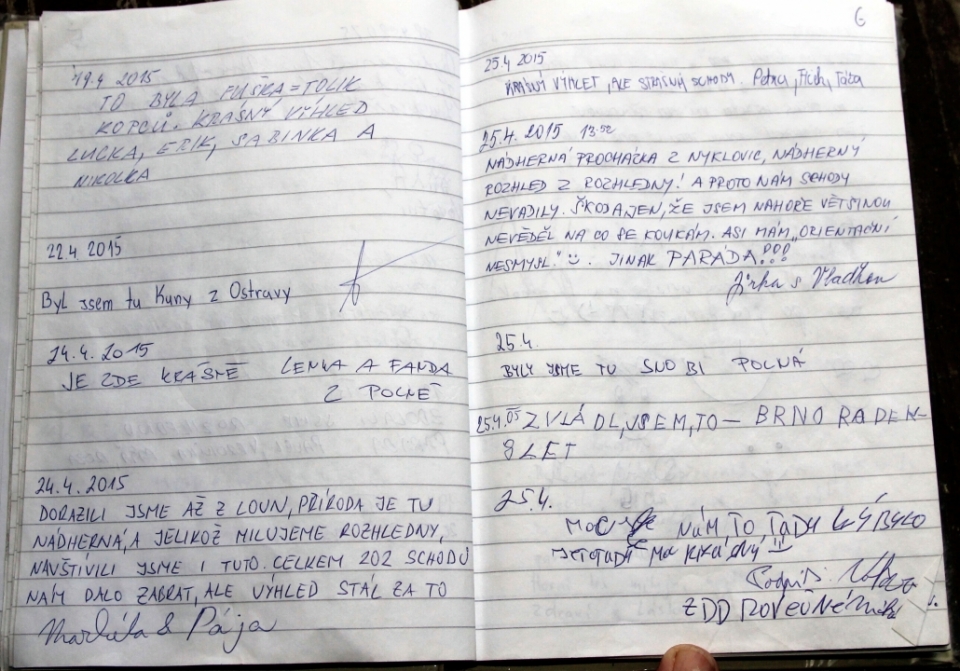 19.4 2015
TO BYLA FUŠKA = TOLIK
KOPCŮ. KRÁSNÝ VÝHLED
LUCKA, ERIK, SABINKA A
NIKOLKA
22.4 2015
Byl jsem tu Kuny z Ostravy
24.4. 2015
JE ZDE KRÁSNĚ LENKA A FANDA
Z POLNÉ
24.4.2015
DORAZILI JSME AŽ Z LOUN, PŘÍRODA JE TU
NÁDHERNÁ, A JELIKOŽ MILUJEME ROZHLEDNY,
NAVŠTÍVILI JSME I TUTO. CELKEM 202 SCHODŮ
NÁM DALO ZABRAT, ALE VÝHLED STÁL ZA TO
& Pája
6
25.4 2015
KRÁSNÝ VÝHLET, ALE STRAŠNÝ SCHODY. Petra,
25.4. 2015 13:52
NÁDHERNÁ PROCHÁZKA Z NYKLOVIC, NÁDHERNÝ
ROZHLED Z ROZHLEDNY! A PROTO NÁM SCHODY
NEVADILY. ŠKODA JEN, ŽE JSEM NAHOŘE VĚTŠINOU
NEVĚDĚL NA CO SE KOUKÁM. ASI MÁM „ORIENTAČNÍ
NESMYSL." . JINAK PARÁDA!!!
Jirka s Vlaďkou
25.4.
BYLY JSME TU SNOBI POLNÁ
25.4.05 ZVLÁDL,JSEM,TO — BRNO RADEK-
8 LET
25.4.
MOC NÁM TO TADY